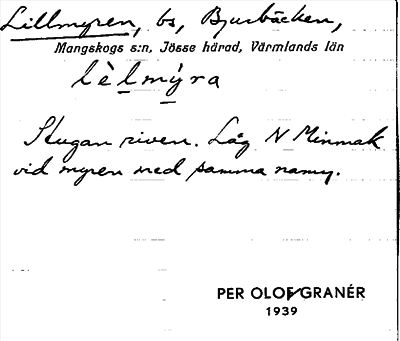 Lillmyren, bs, Bjurbäcken,
Mangskogs s:n, Jösse härad, Värmlands län
lèlmýra
Stugan riven. Låg N Minmak
vid myren med samma namn.
PER OLOF GRANÉR
1939